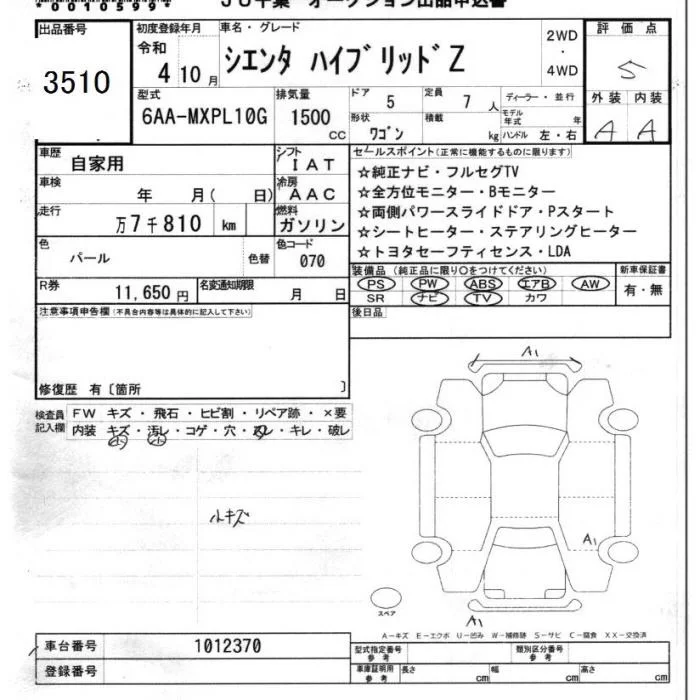 00105994
JU千葉 オークション出品申込書
出品番号
3510
初度登録年月
令和
4 10 月
車名・グレード
シエンタ ハイブリッドZ
2WD
・
4WD
評価点
5
型式
6AA-MXPL10G
排気量
1500
cc
ドア 5
定員 7 人
ディーラー・並行
形状
ワゴン
積載
kg
モデル年式 年
ハンドル 左・右
外装 内装
A A
車歴
自家用
シフト
IAT
車検
年 月( 日)
冷房
AAC
走行
万7千810 km
燃料
ガソリン
色
パール
色替
色コード
070
R券
11,650円
名変通知期限
月 日
セールスポイント(正常に機能するものに限ります)
☆純正ナビ・フルセグTV
☆全方位モニター・Bモニター
☆両側パワースライドドア・Pスタート
☆シートヒーター・ステアリングヒーター
☆トヨタセーフティセンス・LDA
装備品(純正品に限り○をつけてください)
PS PW ABS エアB AW
SR ナビ TV カワ
新車保証書
有・無
後日品
注意事項申告欄(不具合内容等は具体的に記入して下さい)
修復歴 有〔箇所 〕
検査員
記入欄
FW キズ・飛石・ヒビ割・リペア跡・×要
内装 キズ・汚レ・コゲ・穴・スレ・キレ・破レ
小 小
ルキズ
A1
A1
A1
スペア
A-キズ E-エクボ U-凹み W-補修跡 S-サビ C-腐食 XX-交換済
車台番号 1012370
登録番号
型式指定番号
参考
類別区分番号
参考
車庫証明用
参考
長さ cm 幅 cm 高さ cm